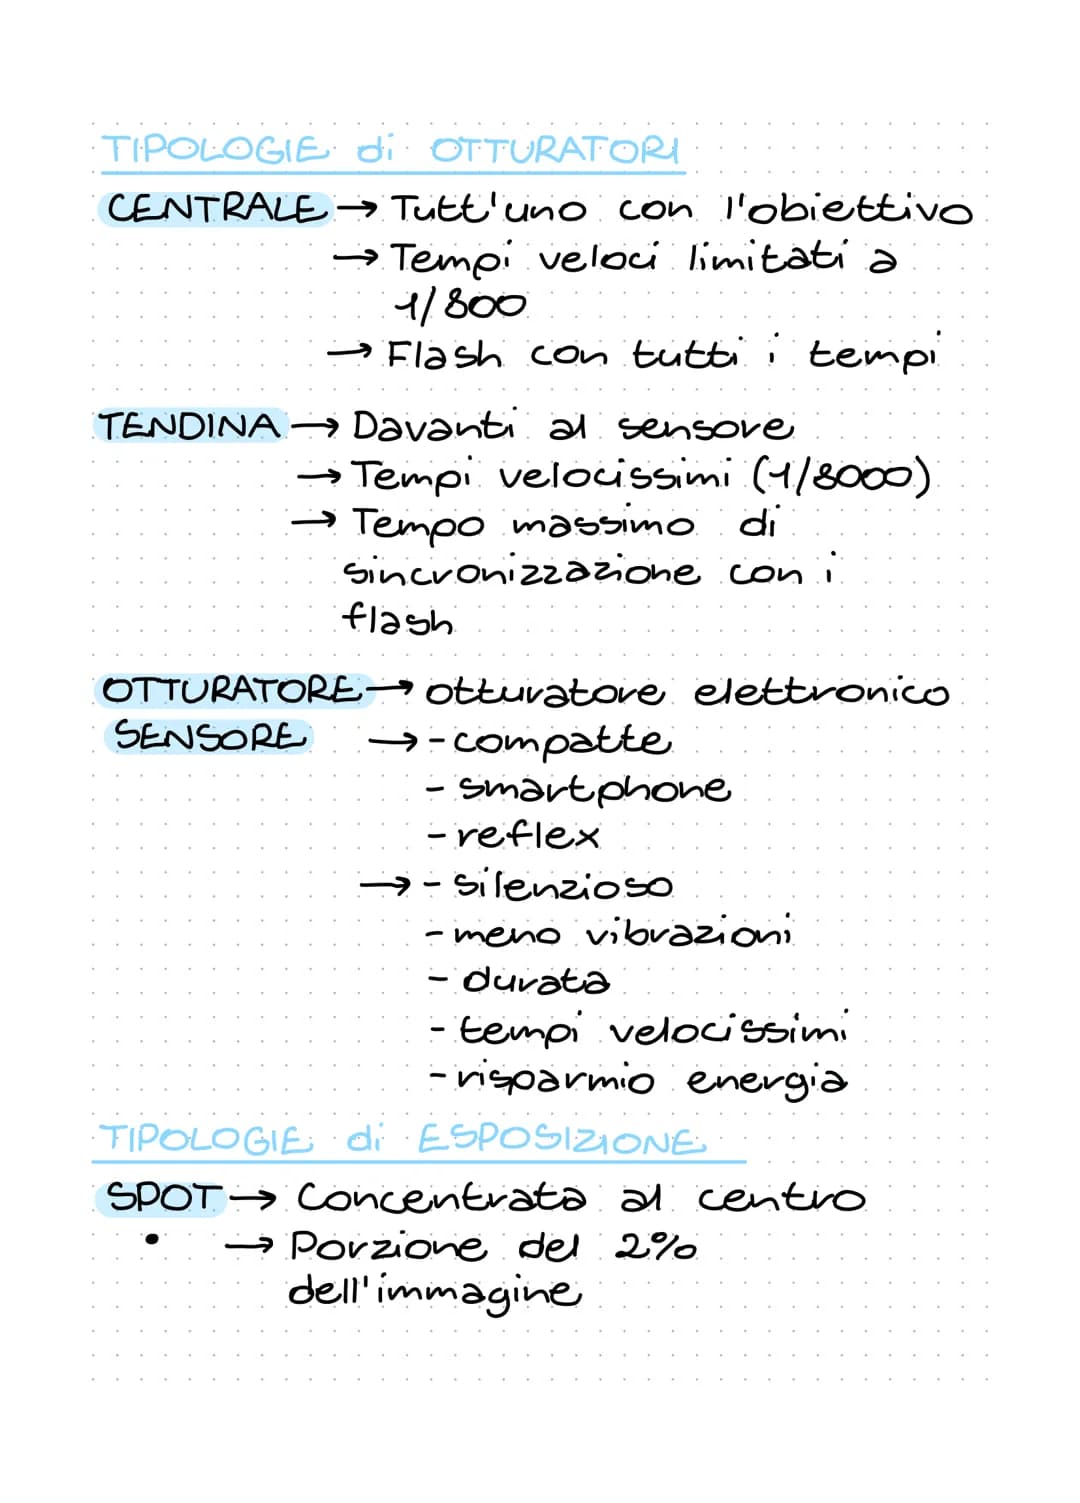 TIPOLOGIE di OTTURATORI
CENTRALE → Tutt'uno con l'obiettivo
→ Tempi veloci limitati a
1/800
→ Flash con tutti i tempi
TENDINA → Davanti al sensore
→ Tempi velocissimi (1/8000)
→ Tempo massimo di
sincronizzazione con i
flash
OTTURATORE → otturatore elettronico
SENSORE → - compatte
- smartphone
- reflex
→ - silenzioso
- meno vibrazioni
- durata
- tempi velocissimi
- risparmio energia
TIPOLOGIE di ESPOSIZIONE
SPOT → Concentrata al centro
• → Porzione del 2%
dell'immagine